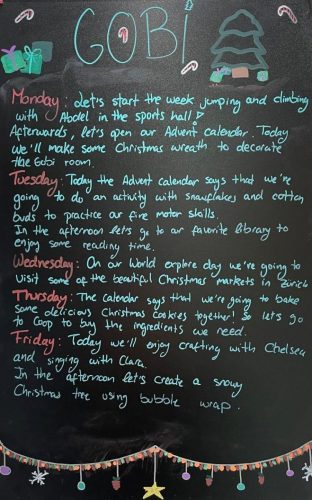 GOBI
Monday: Let's start the week jumping and climbing
with Abdel in the sports hall!
Afterwards, let's open our Advent calendar. Today
we'll make some Christmas wreath to decorate
the Gobi room.
Tuesday: Today the Advent calendar says that we're
going to do an activity with snowflakes and cotton
buds to practice our fine motor skills.
In the afternoon let's go to our favorite library to
enjoy some reading time.
Wednesday: On our World explore day we're going to
visit some of the beautiful Christmas markets in Zurich
Thursday: The calendar says that we're going to bake
some delicious Christmas cookies together! So let's go
to Coop to buy the ingredients we need.
Friday: Today we'll enjoy crafting with Chelsea
and singing with Clara.
In the afternoon let's create a snowy
Christmas tree using bubble wrap.